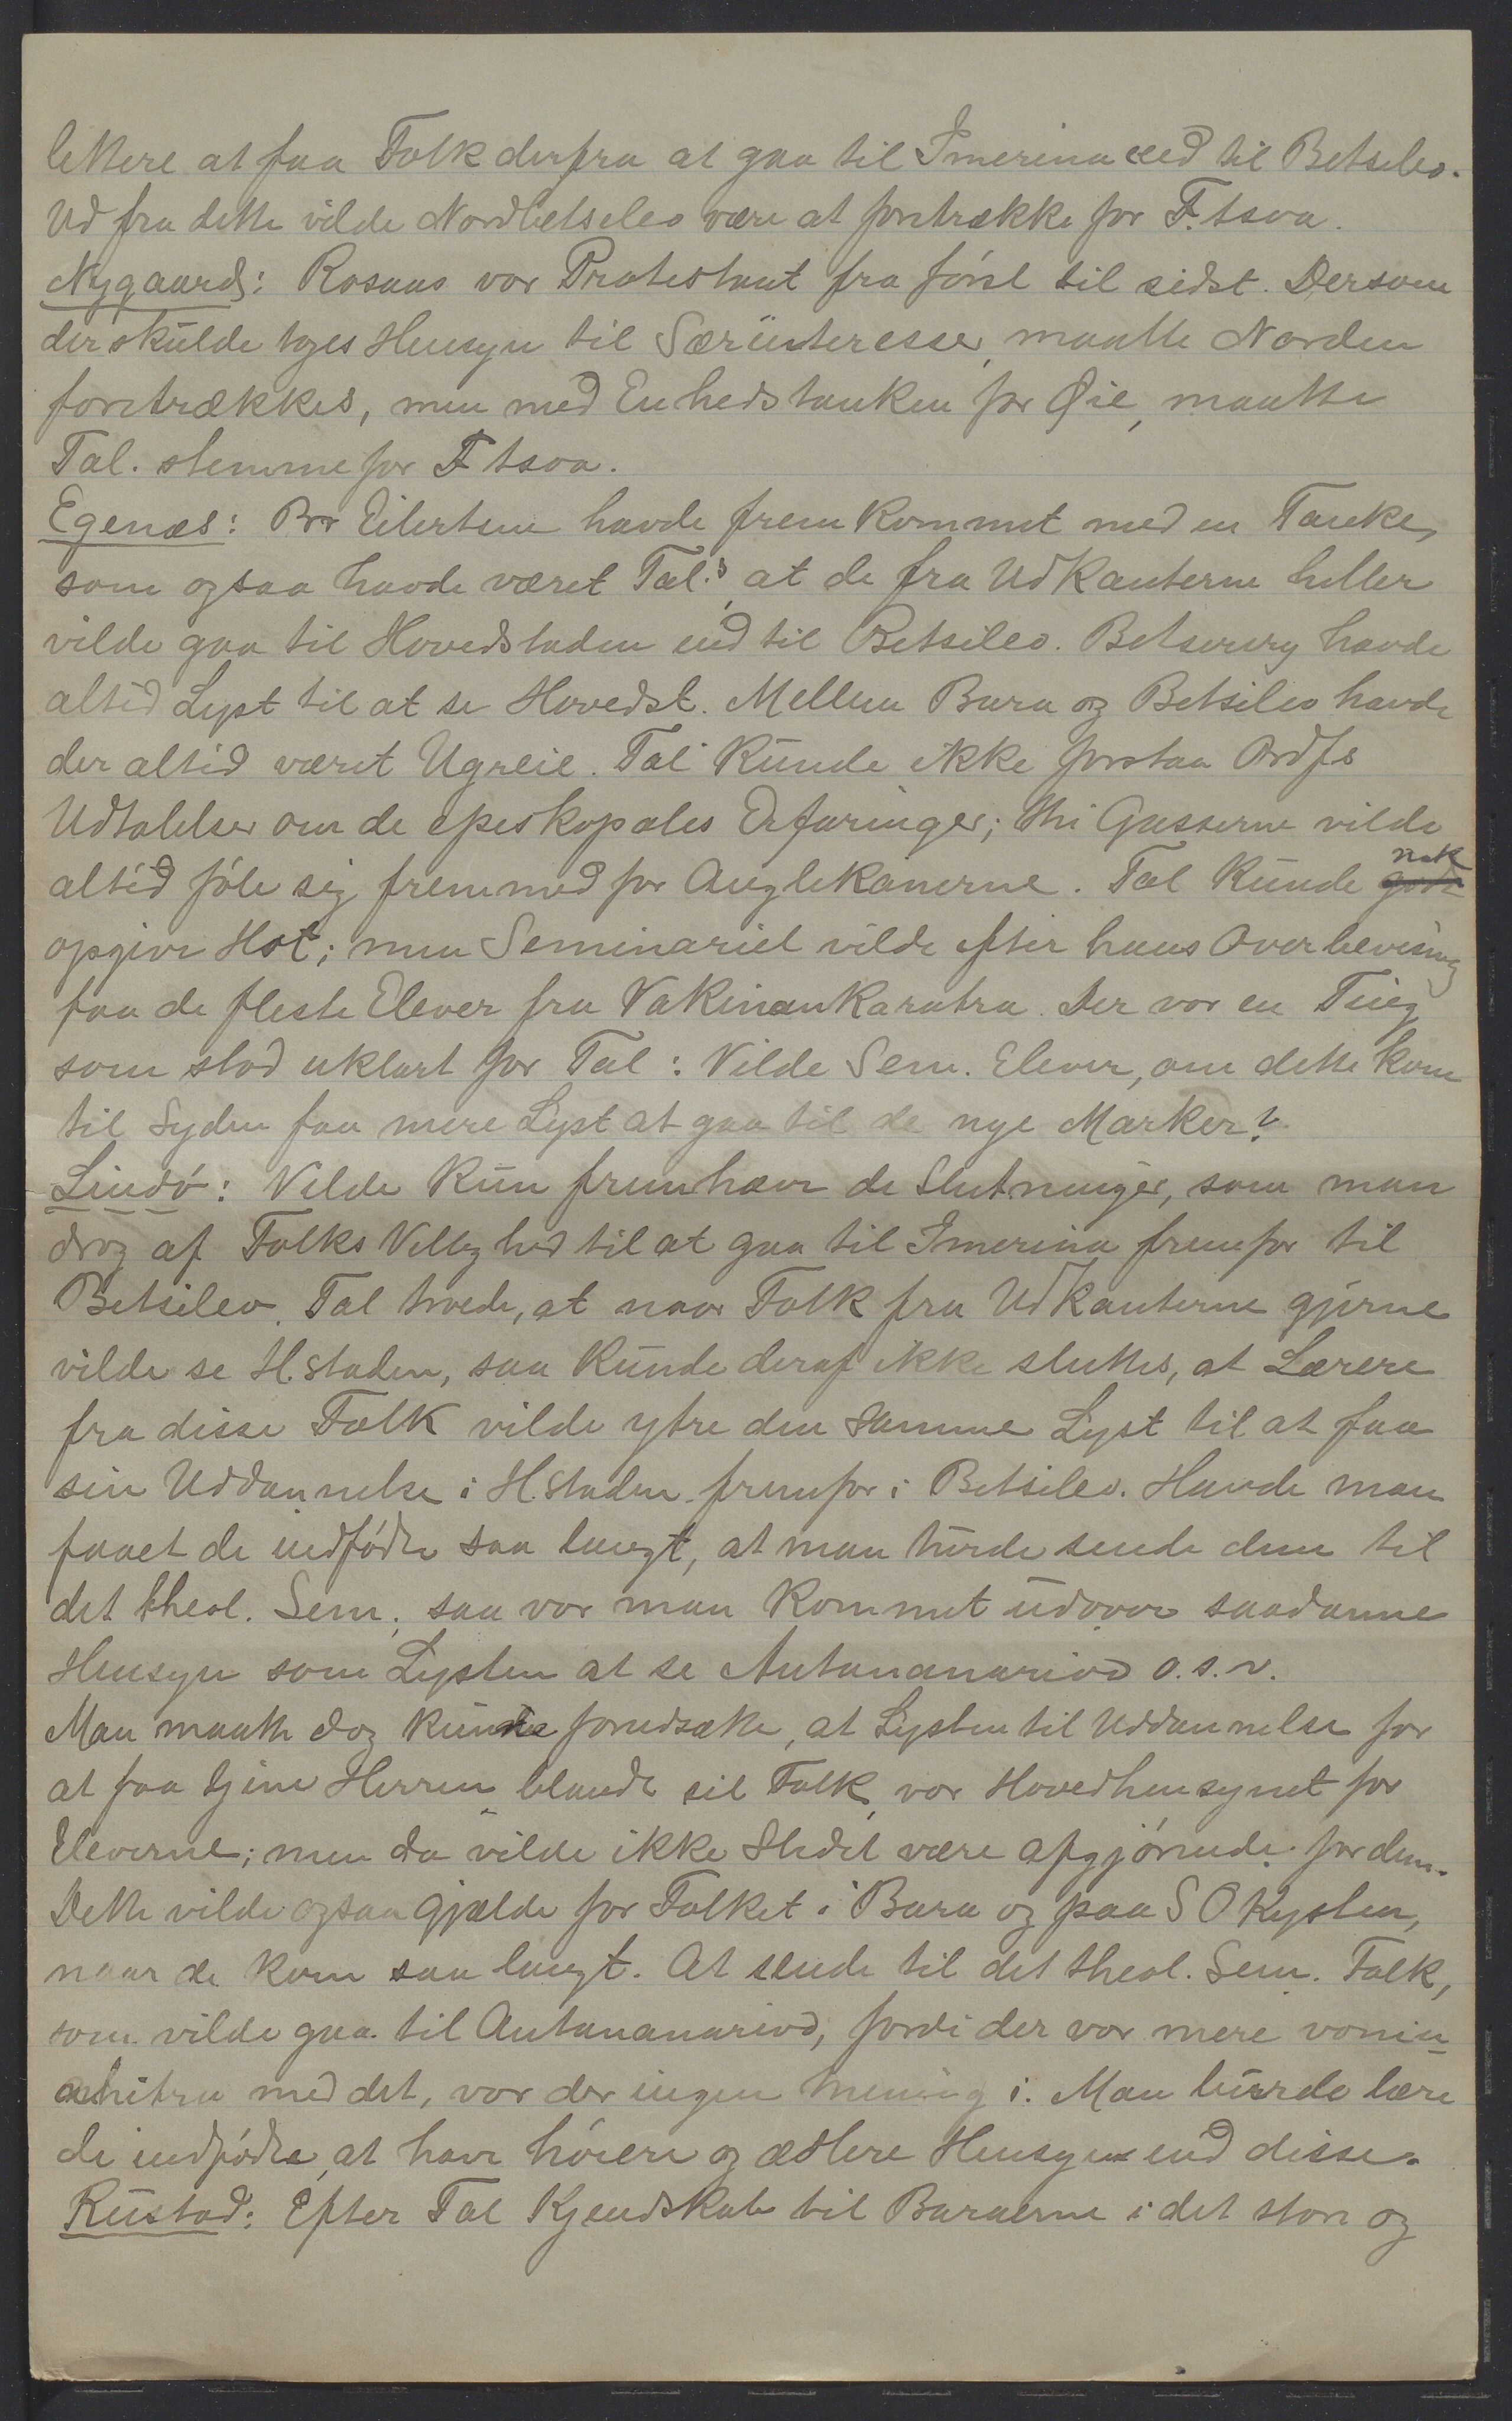 lettere at faa Folk derfra at gaa til Imerina end til Betsileo.
Ud fra dette vilde Nordbetsileo være at foretrække for F.tsoa.
Nygaard: Rosaas var Protestant fra først til sidst. Dersom
der skulde tages Hensyn til Særinteresser, maatte Norden
foretrækkes, men med Enhedstanken for Øie, maatte
Tal. stemme for F tsoa.
Egenæs: Br Eilertsen havde fremkommet med en Tanke,
som ogsaa havde været Tal.s, at de fra Udkanterne heller
vilde gaa til Hovedstaden end til Betsileo. Betsileo havde
altid Lyst til at se Hovedst. Mellem Bara og Betsileo havde
der altid været Ugreie. Tal kunde ikke forstaa Ordfs
Udtalelser om de episkopales Erfaringer; thi Gasserne vilde
altid føle sig fremmed for Anglikanerne. Tal kunde nok
opgive Hst; men Seminariet vilde efter hans Overbevisning
faa de fleste Elever fra Vakinankaratra. Der var en Ting
som stod uklart for Tal: Vilde Sem. Elever, om dette kom
til Syden faa mere Lyst at gaa til de nye Marker?
Lindø: Vilde kun fremhæve de Slutninger, som man
drog af Folks Villighed til at gaa til Imerina fremfor til
Betsileo. Tal troede, at naar Folk fra Udkanterne gjerne
vilde se H.staden, saa kunde deraf ikke sluttes, at Lærere
fra disse Folk vilde ytre den samme Lyst til at faa
sin Uddannelse i H.staden fremfor i Betsileo. Havde man
faaet de indfødte saa langt, at man turde sende dem til
det theol. Sem., saa var man kommet udover saadanne
Hensyn som Lysten at se Antananarivo o.s.v.
Man maatte dog kunne forudsætte, at Lysten til Uddannelse for
at faa tjene Herren blandt sit Folk, var Hovedhensynet for
Eleverne; men da vilde ikke Stedet være afgjørende for dem.
Dette vilde ogsaa gjælde for Folket i Bara og paa S O Kysten,
naar de kom saa langt. At sende til det theol. Sem. Folk,
som vilde gaa til Antananarivo, fordi der var mere vonin_
ahitra med det, var der ingen Mening i. Man burde lære
de indfødte, at have høiere og ædlere Hensyn end disse.
Rustad: Efter Tal Kjendskab til Baraerne i det store og